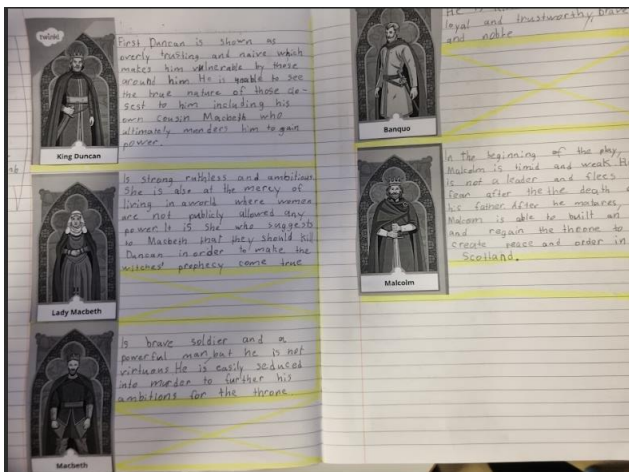 twinkl
First Duncan is shown as
overly trusting and naive which
makes him vulnerable by those
around him. He is unable to see
the true nature of those clo-
sest to him including his
own cousin Macbeth who
ultimately murders him to gain
power.
King Duncan
Is strong ruthless and ambitious
She is also at the mercy of
living in a world where women
are not publicly allowed any
power. It is she who suggests
to Macbeth that they should kill
Duncan in order to make the
witches' prophecy come true
Lady Macbeth
Is brave soldier and a
powerful man but he is not
virtuans He is easily seduced
into murder to further his
ambitions for the throne
Macbeth
He is
loyal and trustworthy, brave
and noble
Banquo
In the beginning of the play,
Malcolm is timid and weak. He
is not a leader and flees
fear after the the death
his father. After he matures,
Malcom is able to built an
and regain the throne to
create peace and order in
Scotland.
Malcolm